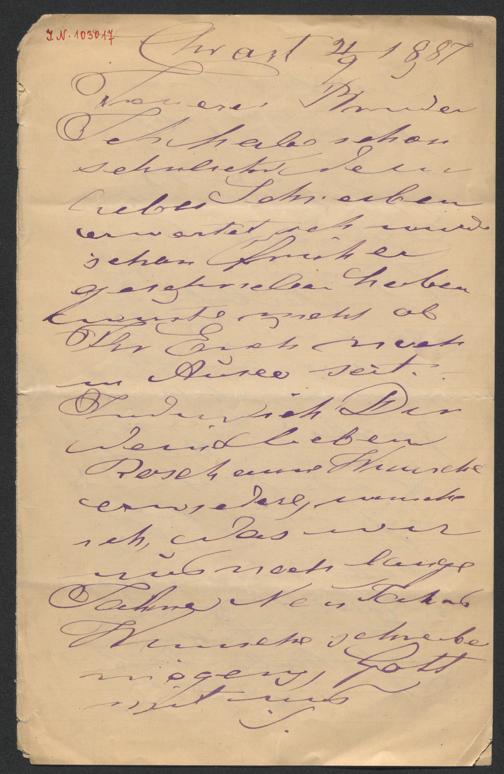 J.N. 103017
Chrast 4/9 1887
Teuerer Bruder
Ich habe schon
sehnlichst Dein
liebes Schreiben
erwartet, ich würde
schon früher
geschrieben haben
wuste nicht ob
Ihr Euch noch
in Aussee seit.
Indem ich Dir
Deine lieben
Rosch ano Wunsche
erwidere, wunsche
ich, das wir
uns noch lange
Jahre Neu Jahrs
Wunsche schreiben
mögen, Gott
mit uns